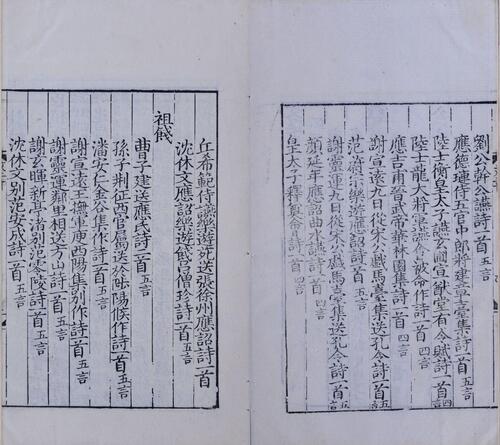 劉公幹公讌詩一首
應德璉侍五官中郎將建章臺集詩一首五言
陸士衡皇太子讌玄圃宣猷堂有令賦詩一首四言
陸士龍大將軍讌會被命作詩一首四言
應吉甫晉武帝華林園集詩一首四言
謝宣遠九日從宋公戲馬臺集送孔令詩一首五言
范蔚宗樂遊應詔詩一首五言
謝靈運九日從宋公戲馬臺集送孔令詩一首五言
顏延年應詔曲水讌詩一首四言
皇太子釋奠會詩一首四言
丘希範侍讌樂遊苑送張徐州應詔詩一首
沈休文應詔樂遊餞呂僧珍詩一首五言
祖餞
曹子建送應氏詩二首五言
孫子荊征西官屬送於陟陽候作詩一首五言
潘安仁金谷集作詩一首五言
謝宣遠王撫軍庾西陽集別作詩一首五言
謝靈運鄰里相送方山詩一首五言
謝玄暉新亭渚別范零陵詩一首五言
沈休文別范安成詩一首五言